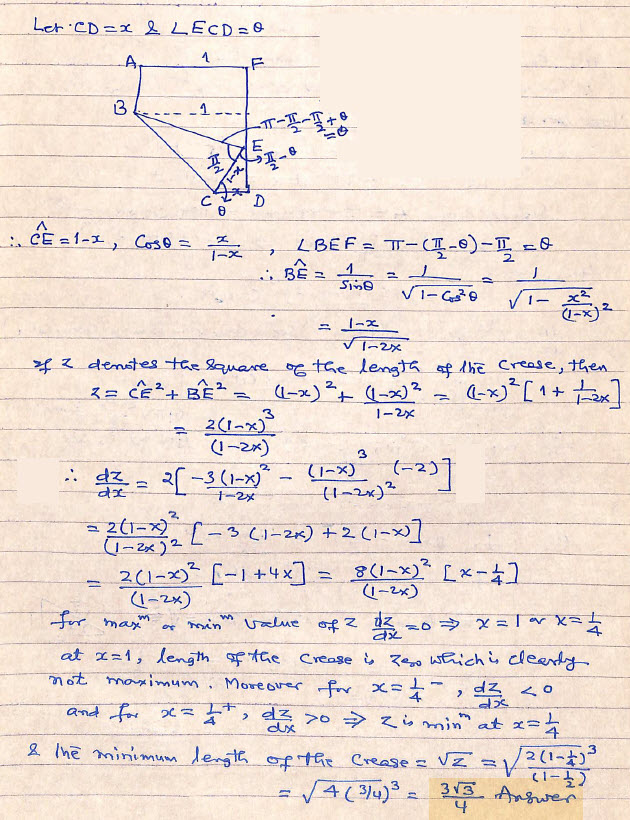 Let CD = x & ∠ECD = θ
A 1 F
B 1
π - π/2 - π/2 + θ
= θ
E
π/2 π/2 - θ
1-x
C x D
θ
∴ CÊ = 1-x, Cosθ = x/(1-x), ∠BEF = π - (π/2 - θ) - π/2 = θ
∴ BÊ = 1/Sinθ = 1/√(1-Cos²θ) = 1/√(1 - x²/(1-x)²)
= (1-x)/√(1-2x)
If z denotes the square of the length of the crease, then
z = CÊ² + BÊ² = (1-x)² + (1-x)²/(1-2x) = (1-x)² [1 + 1/(1-2x)]
= 2(1-x)³/(1-2x)
∴ dz/dx = 2[-3(1-x)²/(1-2x) - (1-x)³/(1-2x)² (-2)]
= 2(1-x)²/(1-2x)² [-3(1-2x) + 2(1-x)]
= 2(1-x)²/(1-2x) [-1+4x] = 8(1-x)²/(1-2x) [x - 1/4]
for maxᵐ or minᵐ value of z dz/dx = 0 ⇒ x = 1 or x = 1/4
at x=1, length of the crease is zero which is clearly
not maximum. Moreover for x = 1/4 -, dz/dx < 0
and for x = 1/4 +, dz/dx > 0 ⇒ z is minᵐ at x = 1/4
& the minimum length of the crease = √z = √(2(1-1/4)³/(1-1/2))
= √(4(3/4)³) = 3√3/4 Answer